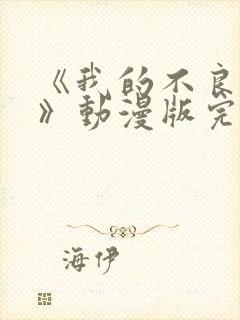 《我的不良
》動漫版完
海伊